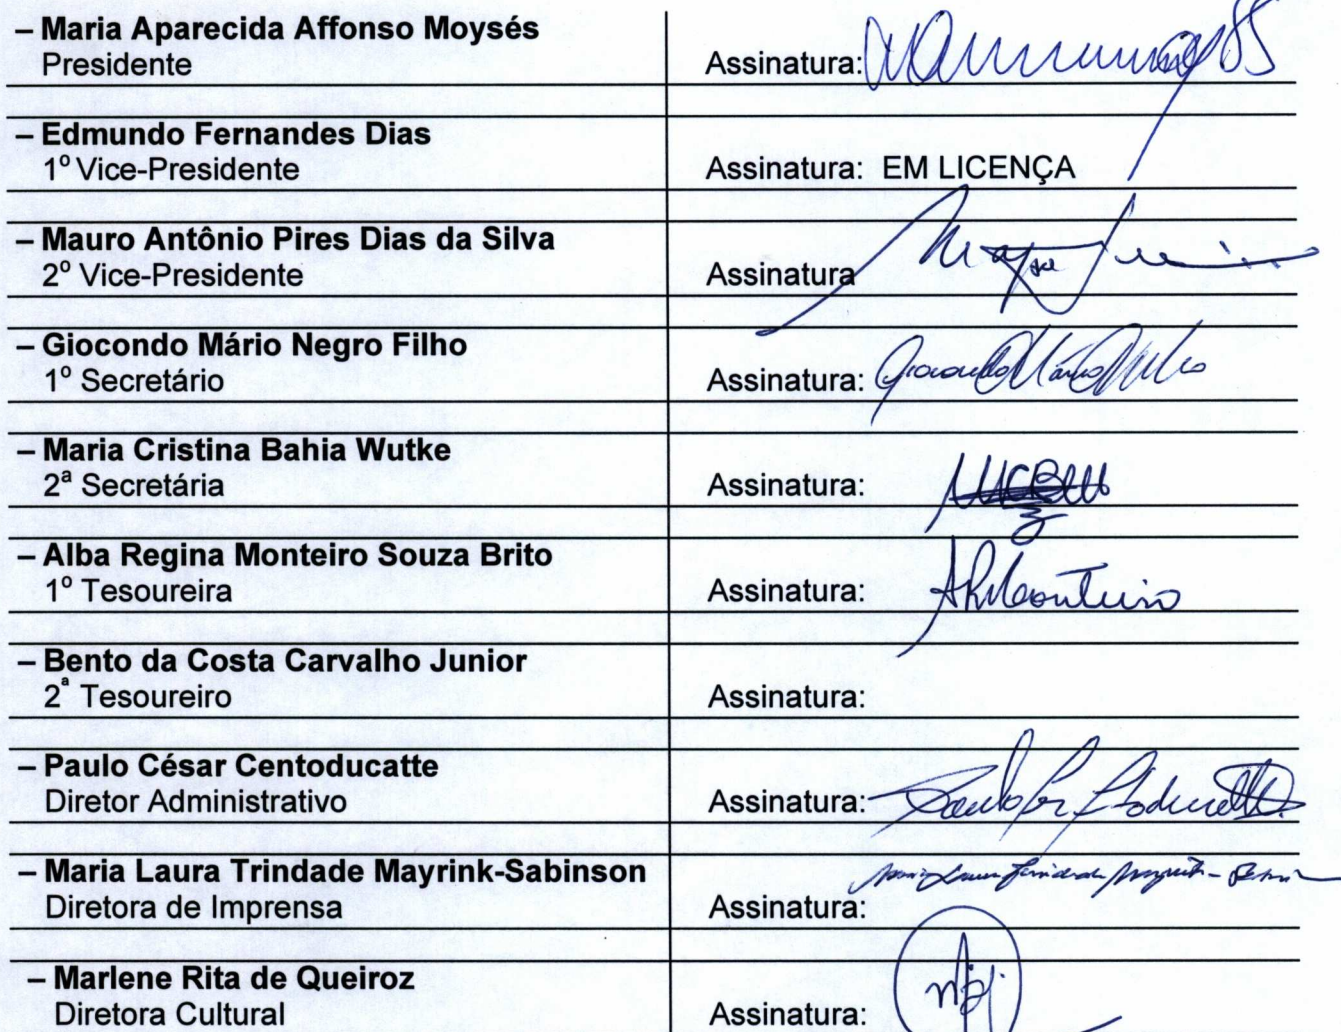 – Maria Aparecida Affonso Moysés
Presidente
Assinatura:
– Edmundo Fernandes Dias
1º Vice-Presidente
Assinatura: EM LICENÇA
– Mauro Antônio Pires Dias da Silva
2º Vice-Presidente
Assinatura
– Giocondo Mário Negro Filho
1º Secretário
Assinatura:
– Maria Cristina Bahia Wutke
2ª Secretária
Assinatura:
– Alba Regina Monteiro Souza Brito
1º Tesoureira
Assinatura: ARMonteiro
– Bento da Costa Carvalho Junior
2ª Tesoureiro
Assinatura:
– Paulo César Centoducatte
Diretor Administrativo
Assinatura:
– Maria Laura Trindade Mayrink-Sabinson
Diretora de Imprensa
Assinatura:
– Marlene Rita de Queiroz
Diretora Cultural
Assinatura: